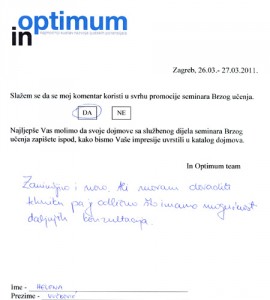 optimum
in
Zagreb, 26.03.- 27.03.2011.
Slažem se da se moj komentar koristi u svrhu promocije seminara Brzog učenja.
DA NE
Najljepše Vas molimo da svoje dojmove sa službenog dijela seminara Brzog
učenja zapišete ispod, kako bismo Vaše impresije uvrstili u katalog dojmova.
In Optimum team
Zanimljivo i novo. Ali moram dovršiti
tehniku pa je odlično što imamo mogućnost
daljnjih konzultacija.
Ime - HELENA
Prezime - VUČKOVIĆ